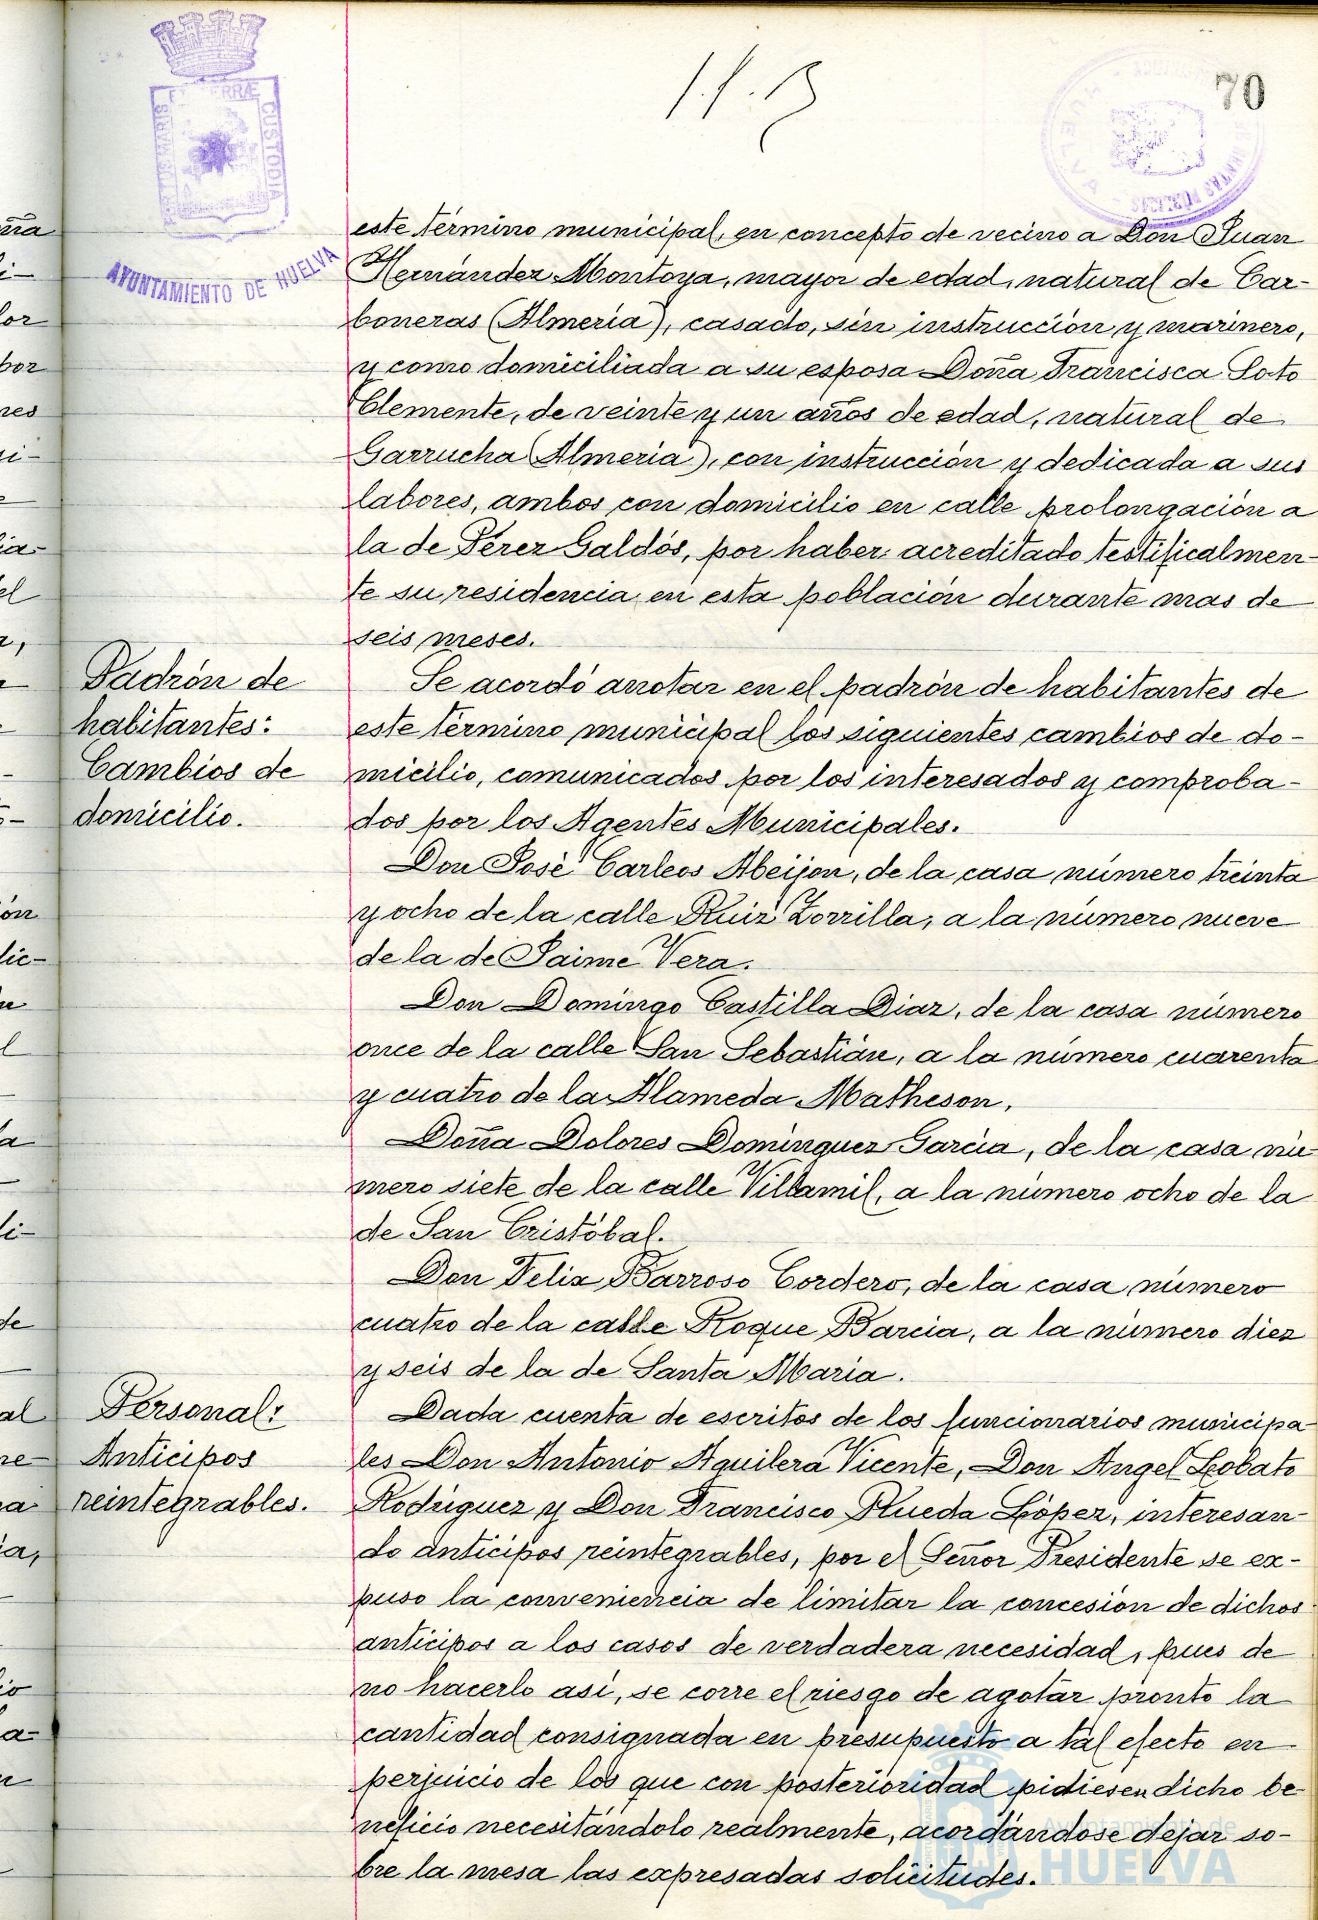 70
PORTUS MARIS ET TERRÆ CUSTODIA
AYUNTAMIENTO DE HUELVA
este término municipal, en concepto de vecino a Don Juan
Hernández Montoya, mayor de edad, natural de Car-
boneras (Almería), casado, sin instrucción y marinero,
y como domiciliada a su esposa Doña Francisca Soto
Clemente, de veinte y un años de edad, natural de
Garrucha (Almería), con instrucción y dedicada a sus
labores, ambos con domicilio en calle prolongación a
la de Pérez Galdós, por haber acreditado testificalmen-
te su residencia en esta población durante mas de
seis meses.
Padrón de
habitantes:
Cambios de
domicilio.
Se acordó anotar en el padrón de habitantes de
este término municipal los siguientes cambios de do-
micilio, comunicados por los interesados y comproba-
dos por los Agentes Municipales.
Don José Carleos Abeijon, de la casa número treinta
y ocho de la calle Ruiz Zorrilla, a la número nueve
de la de Jaime Vera.
Don Domingo Castilla Diaz, de la casa número
once de la calle San Sebastián, a la número cuarenta
y cuatro de la Alameda Matheson.
Doña Dolores Dominguez Garcia, de la casa nú-
mero siete de la calle Villamil, a la número ocho de la
de San Cristóbal.
Don Felix Barroso Cordero, de la casa número
cuatro de la calle Roque Barcia, a la número diez
y seis de la de Santa Maria.
Personal:
Anticipos
reintegrables.
Dada cuenta de escritos de los funcionarios municipa
les Don Antonio Aguilera Vicente, Don Angel Lobato
Rodriguez y Don Francisco Rueda López, interesan-
do anticipos reintegrables, por el Señor Presidente se ex-
puso la conveniencia de limitar la concesión de dichos
anticipos a los casos de verdadera necesidad, pues de
no hacerlo asi, se corre el riesgo de agotar pronto la
cantidad consignada en presupuesto a tal efecto en
perjuicio de los que con posterioridad pidiesen dicho be-
neficio necesitándolo realmente, acordándose dejar so-
bre la mesa las expresadas solicitudes.
Ayuntamiento de
HUELVA